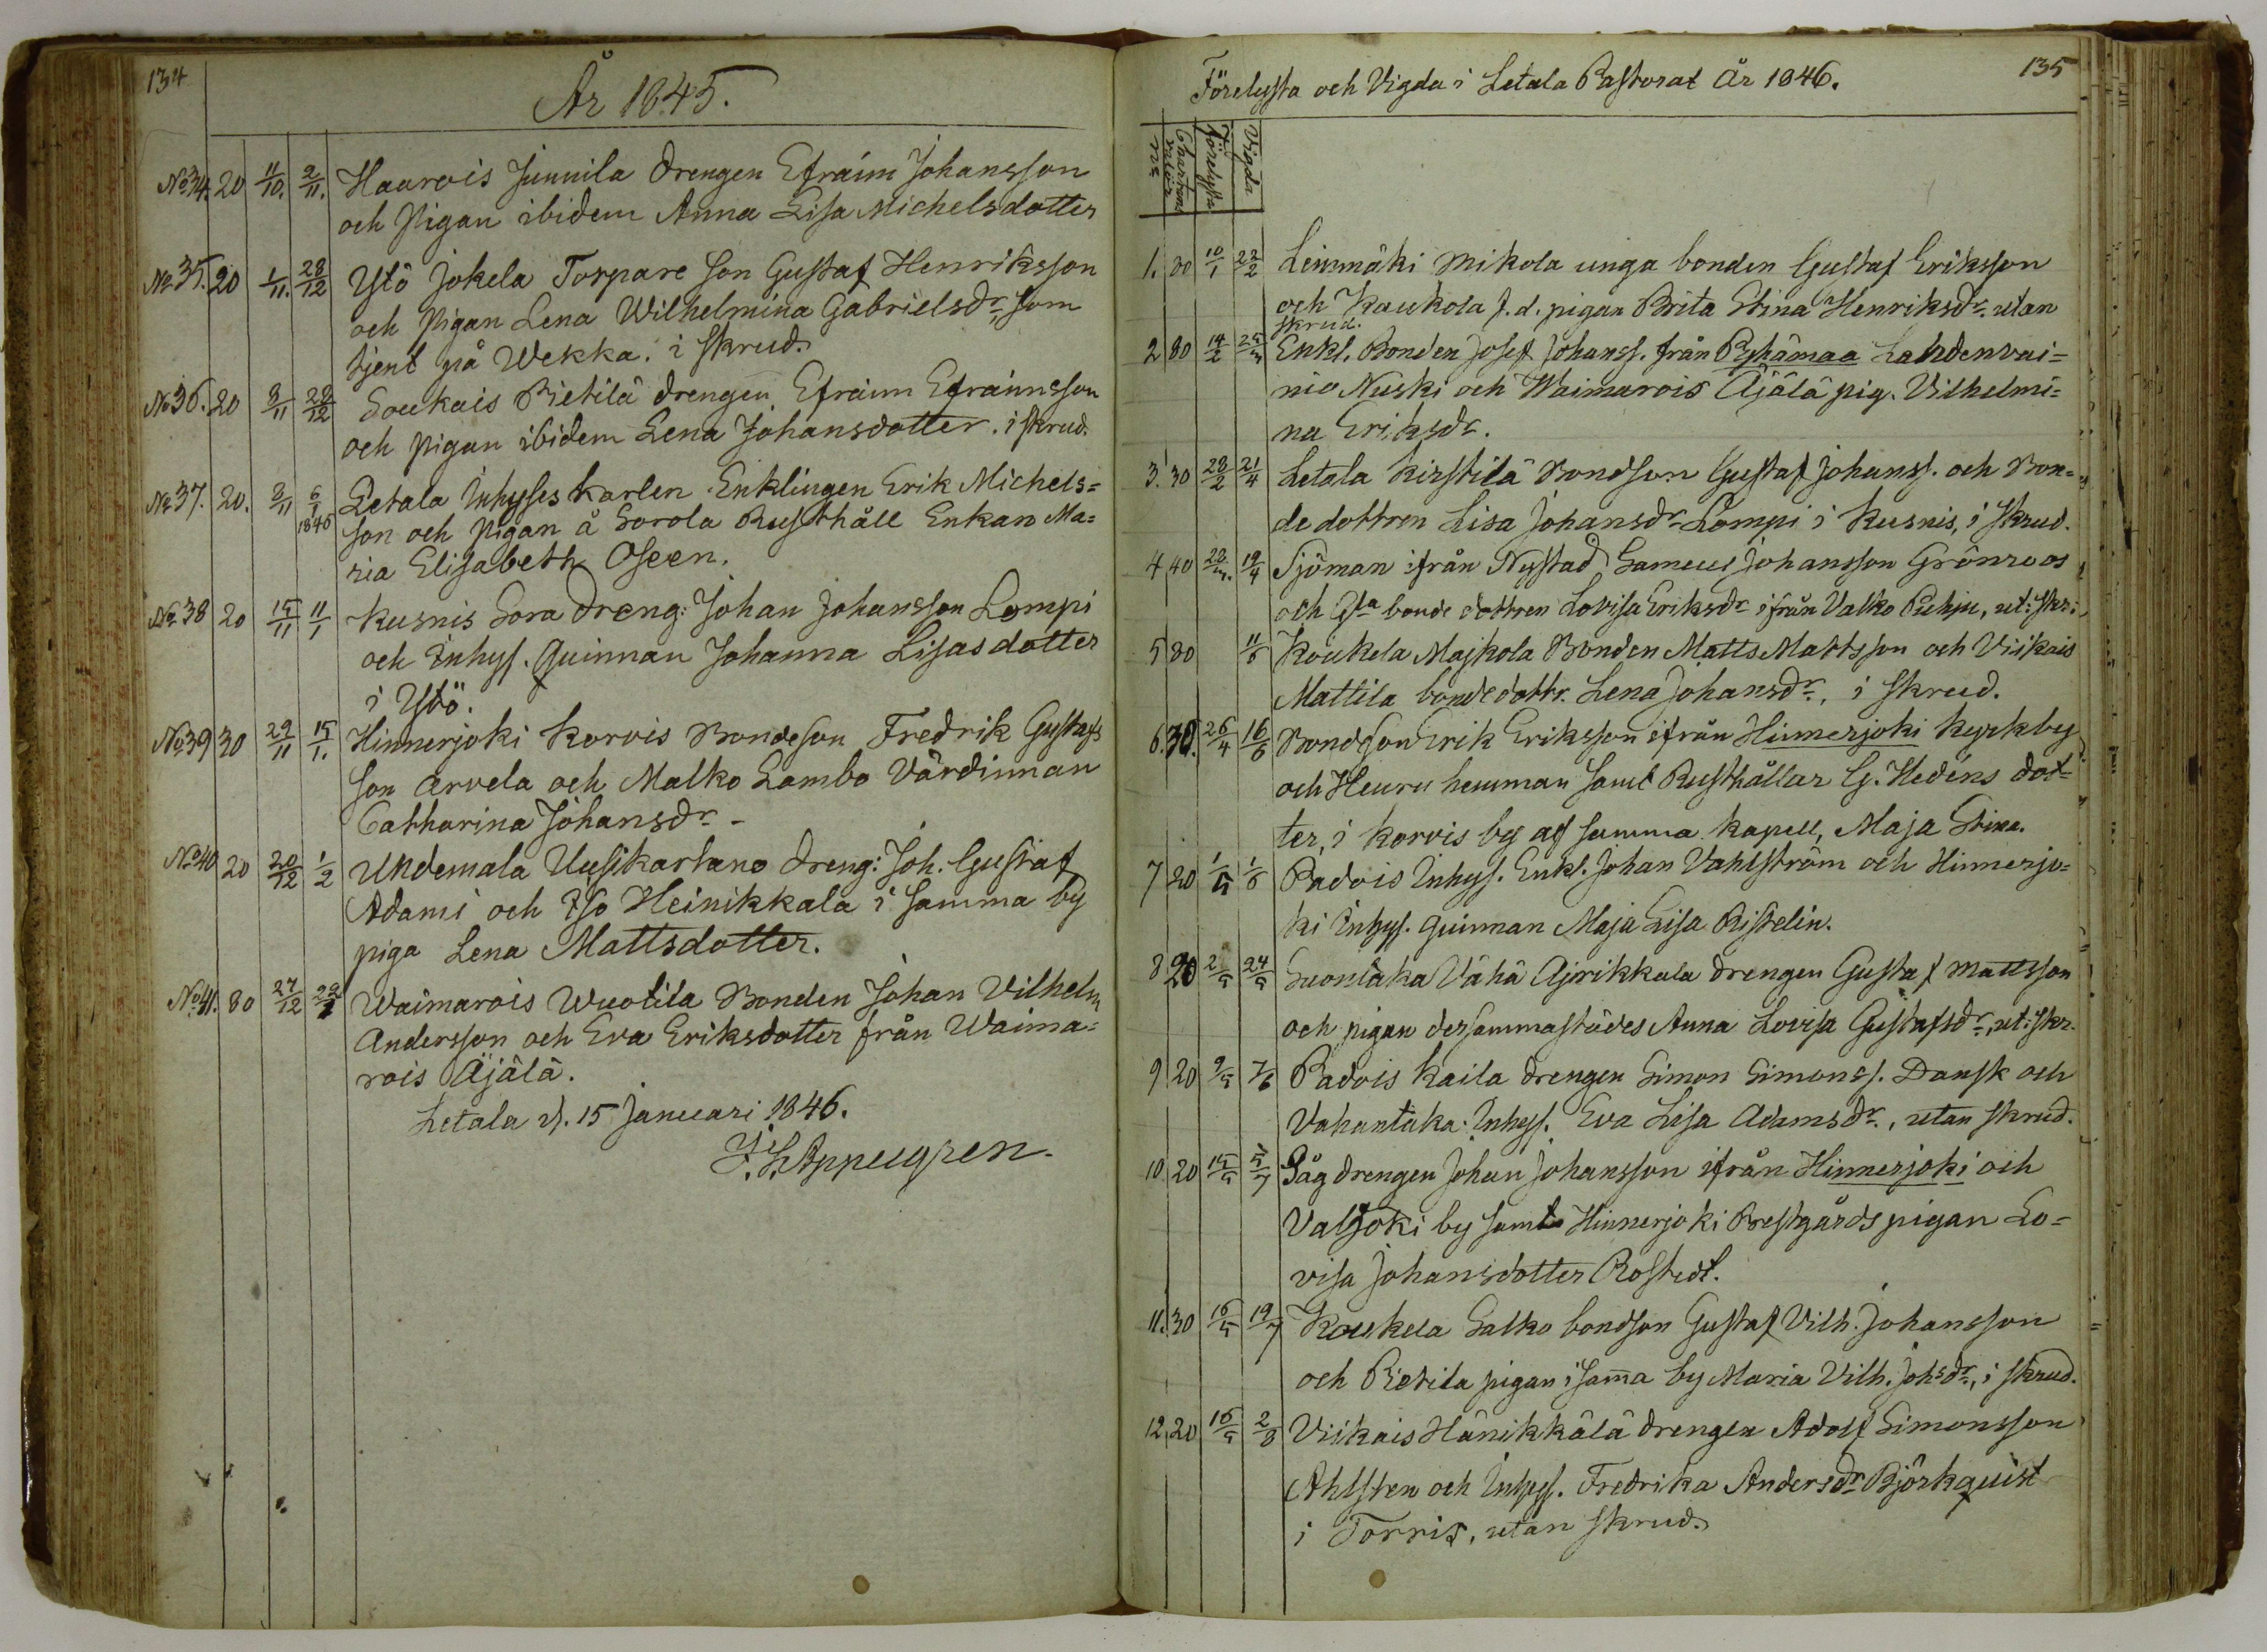 134
År 1845.
No 34. 20 11/10. 2/11. Haarois Junnila Drengen Efraim Johansson
och Pigan ibidem Anna Lisa Michelsdotter
No 35. 20 1/11. 28/12 Ytö Jokela Torpare Son Gustaf Henriksson
och Pigan Lena Wilhelmina Gabrielsdr. som
tjent på Wekka. i skrud.
No 36. 20 8/11 28/12 Soukais Pietilä drengen Efraim Efraimsson
och pigan ibidem Lena Johansdotter. i skrud.
No 37. 20. 8/11 6/1 1846 Letala Inhyses karlen Enklingen Erik Michels=
son och pigan å Sorola Rusthåll Enkan Ma=
ria Elisabeth Oseen.
No 38 20 15/11 11/1 Kusnis Sora dreng: Johan Johansson Lompi
och Inhys. Quinnan Johanna Lisasdotter
i Ytö.
No 39 30 29/11 15/1. Hinnerjoki Korvis Bondeson Fredrik Gustafs
son Arvela och Malko Lambo Värdinnan
Catharina Johansdr.
No 40 20 20/12 1/2 Undemala Uusikartano dreng: Joh. Gustaf
Adami och Iso Heinikkala i samma by
piga Lena Mattsdotter.
No 41. 80 27/12 22/2 Waimarois Wuotila Bonden Johan Vilhelm
Andersson och Eva Eriksdotter från Waima=
rois Äjälä.
Letala d. 15 Januari 1846.
Förelysta och Vigda i Letala Pastorat År 1846.
135
No
Förelysta
Vigda
1. 80 10/1 22/2 Leinmäki Mikola unga bonden Gustaf Eriksson
och Kaukola f.d. pigan Brita Stina Henriksdr. utan
skrud.
2 80 14/2 Enkl. Bonden Josef Johanss. från Pyhämaa Lahdenvai=
nio Nuski och Waimarois Äjälä pig. Vilhelmi=
na Eriksdr.
3. 30 28/2 21/4 Letala Kirstilä Bondson Gustaf Johanss. och Bon=
de dottren Lisa Johansdr. Lompi i Kusnis, i skrud.
4 40 19/4 Sjöman ifrån Nystad Samuel Johansson Grönroos
och bonde dottren Lovisa Eriksdr ifrån Valko Puhju, ut: skr:
5 80 Koukela Majkola Bonden Matts Mattsson och Viikais
Mattila bondedottr. Lena Johansdr., i skrud.
6. 30. 26/4 16/6 Bondson Erik Eriksson ifrån Hinnerjoki Kyrkby
och Heuru hemman samt Rusthållar G. Hedéns dot=
ter, i Korvis by af samma kapell, Maja Stina.
7 20 1/5 1/6 Padois Inhys. Enkl. Johan Vahlström och Hinnerjo=
ki Inhys. quinnan Maja Lisa Ristelin.
8 20 2/5 24/5 Suontaka Vähä Äjrikkala drengen Gustaf Mattsson
och pigan dersammastädes Anna Lovisa Gustafsdr., ut: skr.
9 20 9/5 7/6 Padois Kaila drengen Simon Simonss. Dansk och
Vahantaka Inhys. Eva Lisa Adamsdr., utan skrud.
10 20 15/5 5/7 Såg drengen Johan Johansson ifrån Hinnerjoki och
Valjoki by samt Hinnerjoki Prestgårds pigan Lo=
visa Johansdotter Rostedt.
11. 30 16/5 19/7 Koukela Salko bondson Gustaf Vilh. Johansson
och Pietila pigan i sam̄a by Maria Vilh. Johsdr., i skrud.
12 20 16/5 2/8 Viikais Hänikkälä drengen Adolf Simonsson
Ahlsten och Inhys. Fredrika Andersdr Björkquist
i Torris, utan skrud.